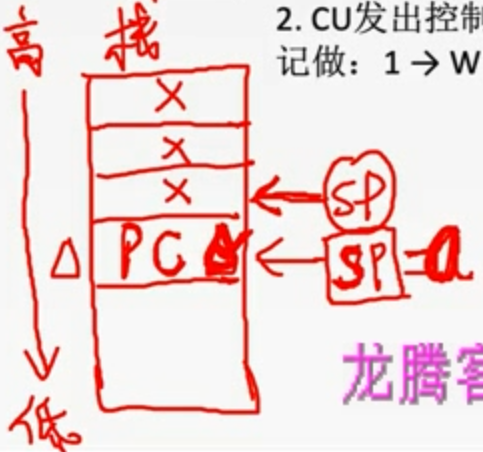 2. CU发出控制
记做：1 → W
高 栈
×
×
×
SP
△ PC
SP = a
低
龙腾客